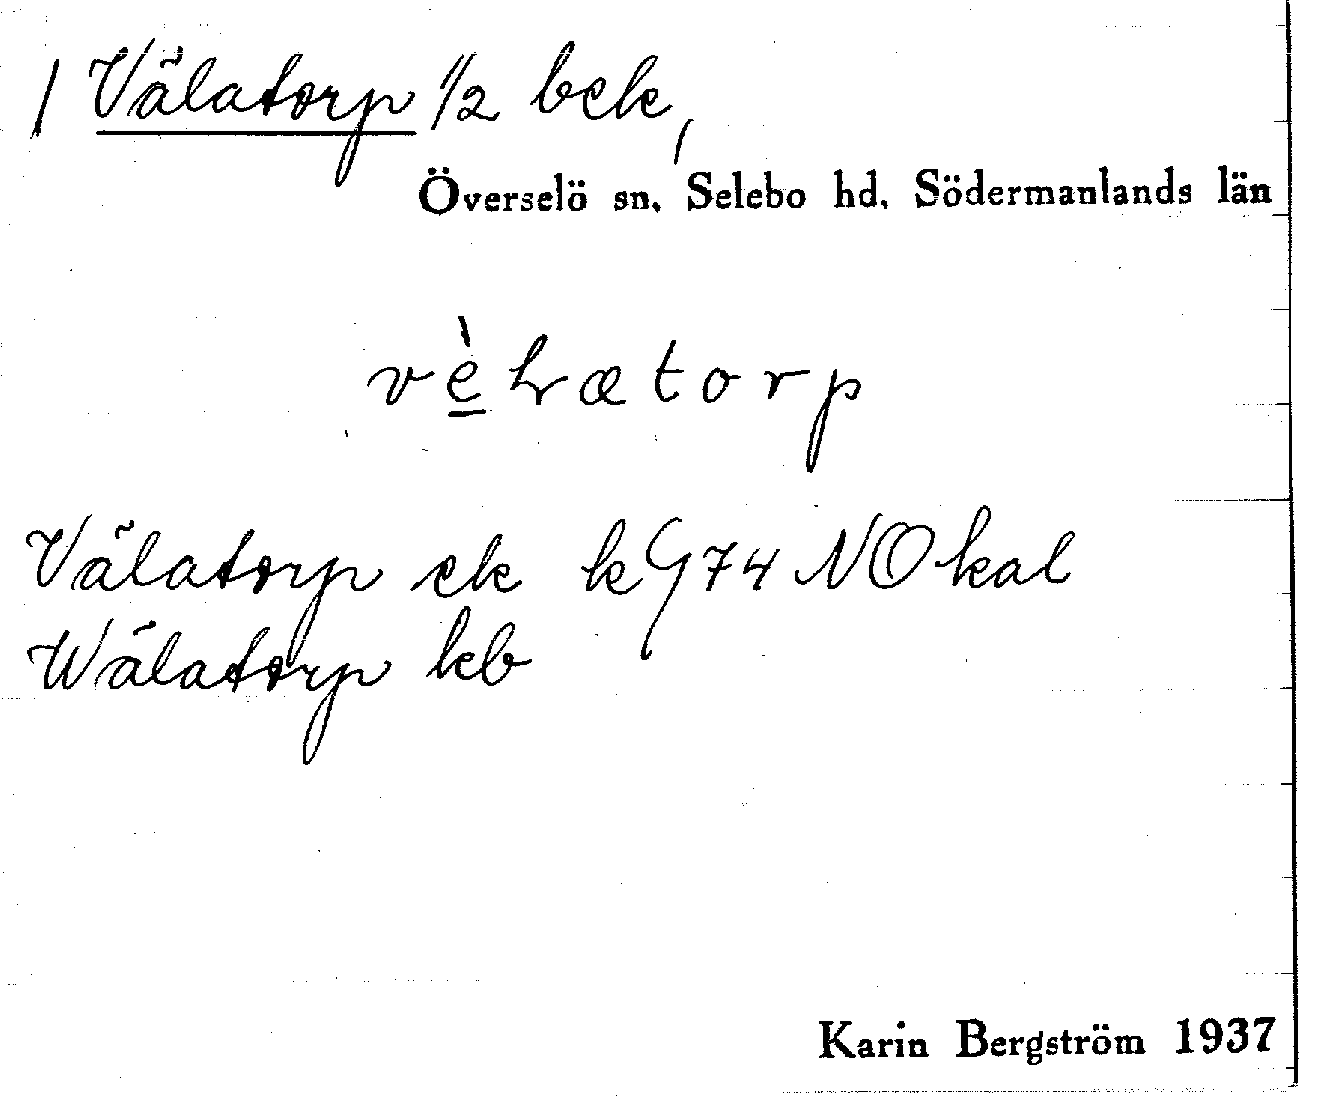 1 Välatorp 1/2 bek,
Överselö sn, Selebo hd, Södermanlands län
Välatorp ek kG74 NO kal
Wälatorp kb
Karin Bergström 1937